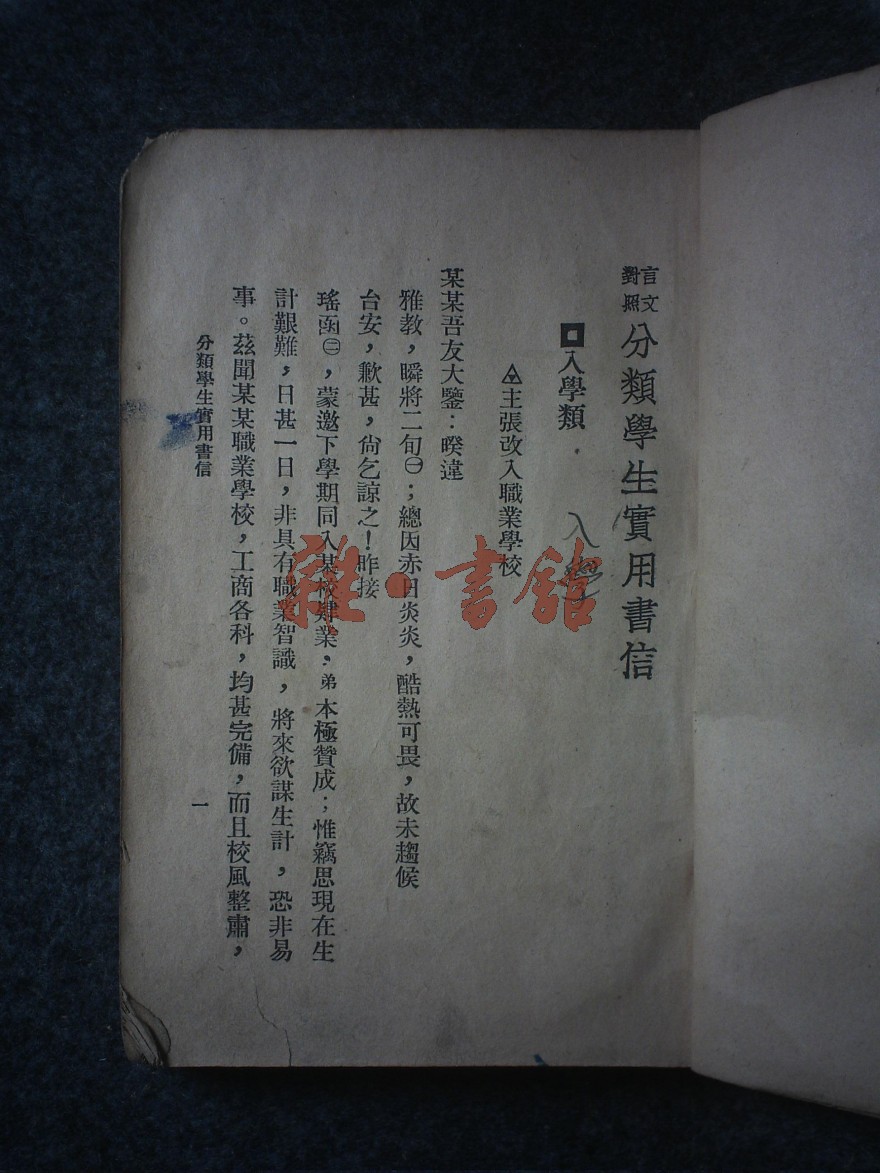 言文對照 分類學生實用書信
入學類
入學
主張改入職業學校
某某吾友大鑒：暌違
雅教，瞬將二旬㊀；總因赤日炎炎，酷熱可畏，故未趨候
台安，歉甚，尙乞諒之！昨接
瑤函㊁，蒙邀下學期同入某校肄業，弟本極贊成；惟竊思現在生
計艱難，日甚一日，非具有職業智識，將來欲謀生計，恐非易
事。茲聞某某職業學校，工商各科，均甚完備，而且校風整肅，
分類學生實用書信
一
雜·書舘